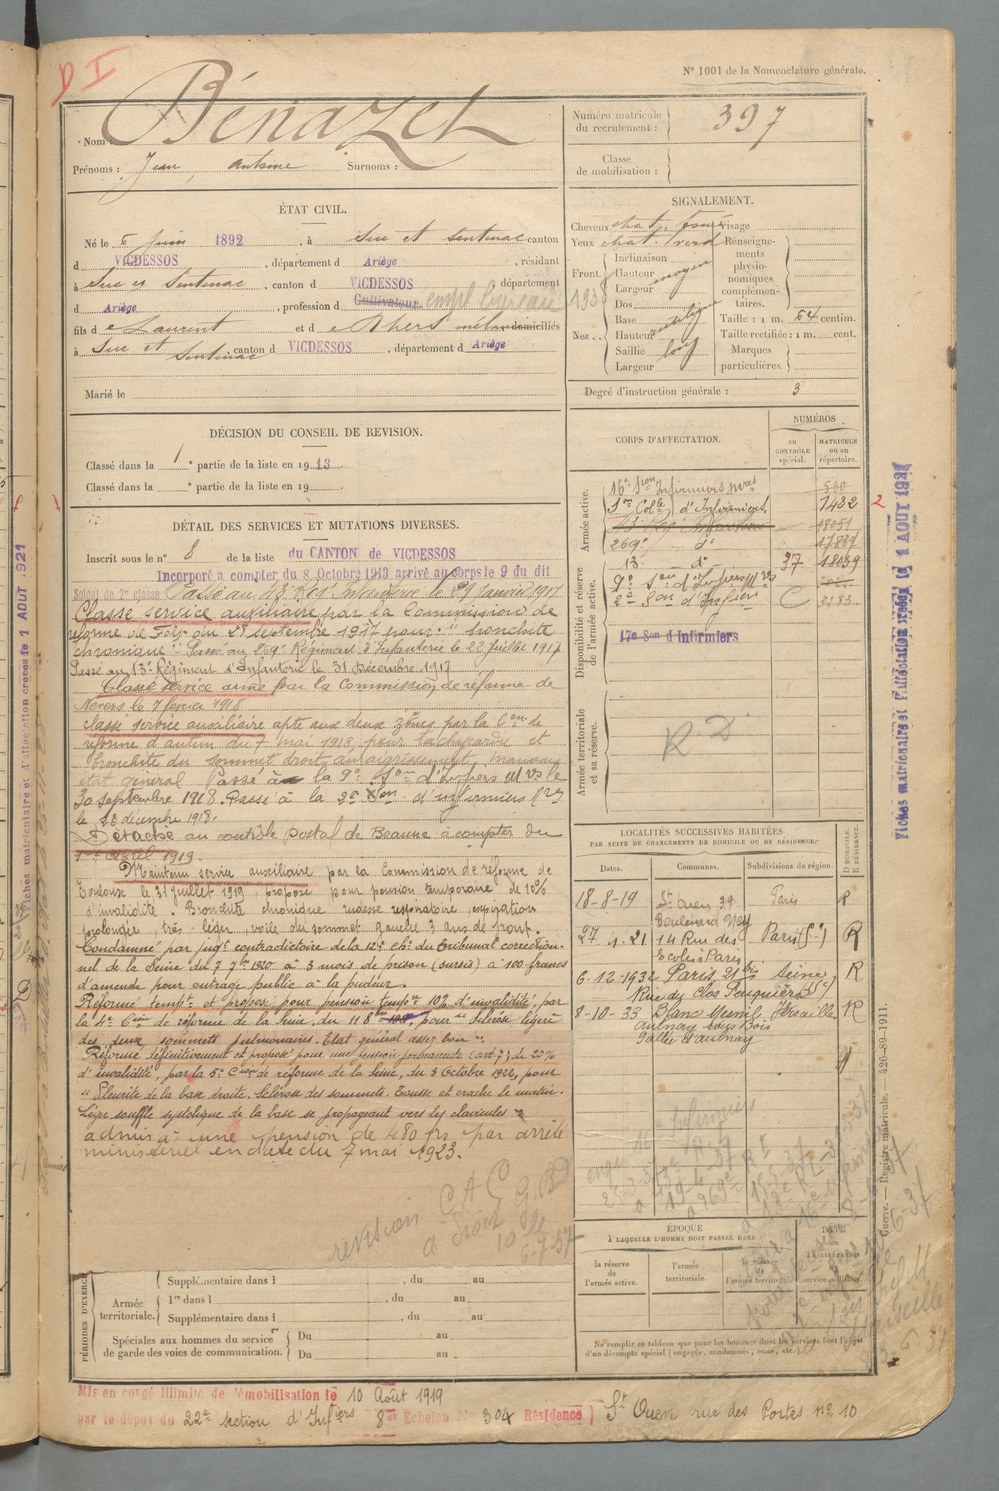 D I
N° 1001 de la Nomenclature générale.
Nom Bénazet
Prénoms : Jean Antoine Surnoms :
Numéro matricule du recrutement : 397
Classe de mobilisation :
ÉTAT CIVIL.
Né le 6 Juin 1892, à Suc et Sentenac canton
d VICDESSOS, département d Ariège, résidant
à Suc et Sentenac, canton d VICDESSOS département
d Ariège, profession d Cultivateur empl bureau 1938
fils de Laurent et de Rhers domiciliés
à Suc et Sentenac canton d VICDESSOS, département d Ariège
Marié le
SIGNALEMENT.
Cheveux chat. foncé Visage
Yeux chat. verd Renseignements physionomiques complémentaires.
Front. Inclinaison
Hauteur moyen
Largeur
Nez. Dos
Base
Hauteur
Saillie
Largeur
Taille : 1 m. 64 centim.
Taille rectifiée : 1 m. cent.
Marques particulières.
Degré d'instruction générale : 3
DÉCISION DU CONSEIL DE REVISION.
Classé dans la 1e partie de la liste en 1913.
Classé dans la e partie de la liste en 19
DÉTAIL DES SERVICES ET MUTATIONS DIVERSES.
Inscrit sous le n° 8 de la liste du CANTON de VICDESSOS
Incorporé a compter du 8 Octobre 1913 arrivé au corps le 9 du dit
Soldat de 2e classe Passé au 13 Regt Infanterie le 21 Janvier 1917
Classé service auxiliaire par la Commission de
réforme de Foix du 28 septembre 1917 pour "bronchite
chronique" Passé au 269e Régiment d'Infanterie le 22 Juillet 1917
Passé au 13e Régiment d'Infanterie le 31 Décembre 1917
Classé service armé par la Commission de réforme de
Nevers le 7 février 1918
classé service auxiliaire apte aux deux zônes par la Con de
réforme d'autun du 7 mai 1918, pour tachycardie et
bronchite du sommet droit amaigrissement, mauvais
état général Passé à la 9e Son d'Infiers Mres le
30 septembre 1918. Passé à la 2e Son d'infirmiers
le 23 décembre 1918.
Détaché au contrôle postal de Beaune à compter du
1er avril 1919.
Maintenu service auxiliaire par la Commission de réforme de
Toulouse le 31 juillet 1919, proposé pour pension temporaire de 10%
d'invalidité. Bronchite chronique rudesse respiratoire, expiration
prolongée, très léger voile du sommet gauche 3 ans de front.
Condamné par jugt contradictoire de la 12e ch. du Tribunal correction-
nel de la Seine du 7 7bre 1920 à 3 mois de prison (sursis) à 100 francs
d'amende pour outrage public à la pudeur.
Réformé tempre et proposé pour pension tempre 10% d'invalidité, par
la 4e Con de réforme de la Seine, du 11 8bre pour " Sclérose légère
des deux sommets pulmonaires. Etat général assez bon "
Réformé définitivement et proposé pour une pension permanente (art 7) de 20%
d'invalidité, par la 5e Con de réforme de la Seine, du 3 Octobre 1922, pour
" Pleurite de la base droite. Sclérose des sommets. Tousse et crache le matin.
Léger souffle systolique de la base se propageant vers les clavicules "
admis à une pension de 480 frs par arrêté
ministériel en date du 7 mai 1923.
revision C A C
10
6-7-37
CORPS D'AFFECTATION.
NUMÉROS
au CONTRÔLE spécial.
MATRICULE ou au répertoire.
Armée active.
16e Section Infirmiers
Son Colle d'Infirmiers 1482
13e Reg Infanterie 18051
269e - d°
13e - d° 37 18039
Disponibilité et réserve de l'armée active.
9e Son d'Infiers
2e Son d'Infiers C 3283
17e Son d Infirmiers
Armée territoriale et sa réserve.
R D
LOCALITÉS SUCCESSIVES HABITÉES
PAR SUITE DE CHANGEMENTS DE DOMICILE OU DE RÉSIDENCE.
Dates. Communes. Subdivisions de région. D DOMICILE. R RÉSIDENCE.
18-8-19 St Ouen 39 Boulevard Ney Paris R
27 4-21 14 Rue des Ecoles Paris Paris (5e) R
6-12-1932 Paris, 21 bis Rue du Clos Feuquières Seine R
8-10-33 Blanc Mesnil Aulnay sous Bois Versailles R
16e infirmiers
ÉPOQUE
À LAQUELLE L'HOMME DOIT PASSER DANS
la réserve de l'armée active.
l'armée territoriale.
la réserve de l'armée territoriale
DATE de la LIBÉRATION du service militaire.
Ne remplir ce tableau que pour les hommes dont les services font l'objet
d'un décompte spécial (engagés, condamnés, omis, etc.).
PÉRIODES D'EXERC
Supplémentaire dans l , du au
Armée territoriale. 1re dans l , du au
Supplémentaire dans l , du au
Spéciales aux hommes du service de garde des voies de communication. Du au
Du au
Mis en congé illimité de démobilisation le 10 Août 1919
par le dépot du 22e section d'Infiers 8e Echelon No 304 Résidence St Ouen rue des Portes no 10
Fiches matriculaire et d'affectation créées le 1 AOUT 1921
Guerre. — Registre matricule. — 426-89-1911.
Fiches matriculaire et d'affectation créées le 1 AOUT 921